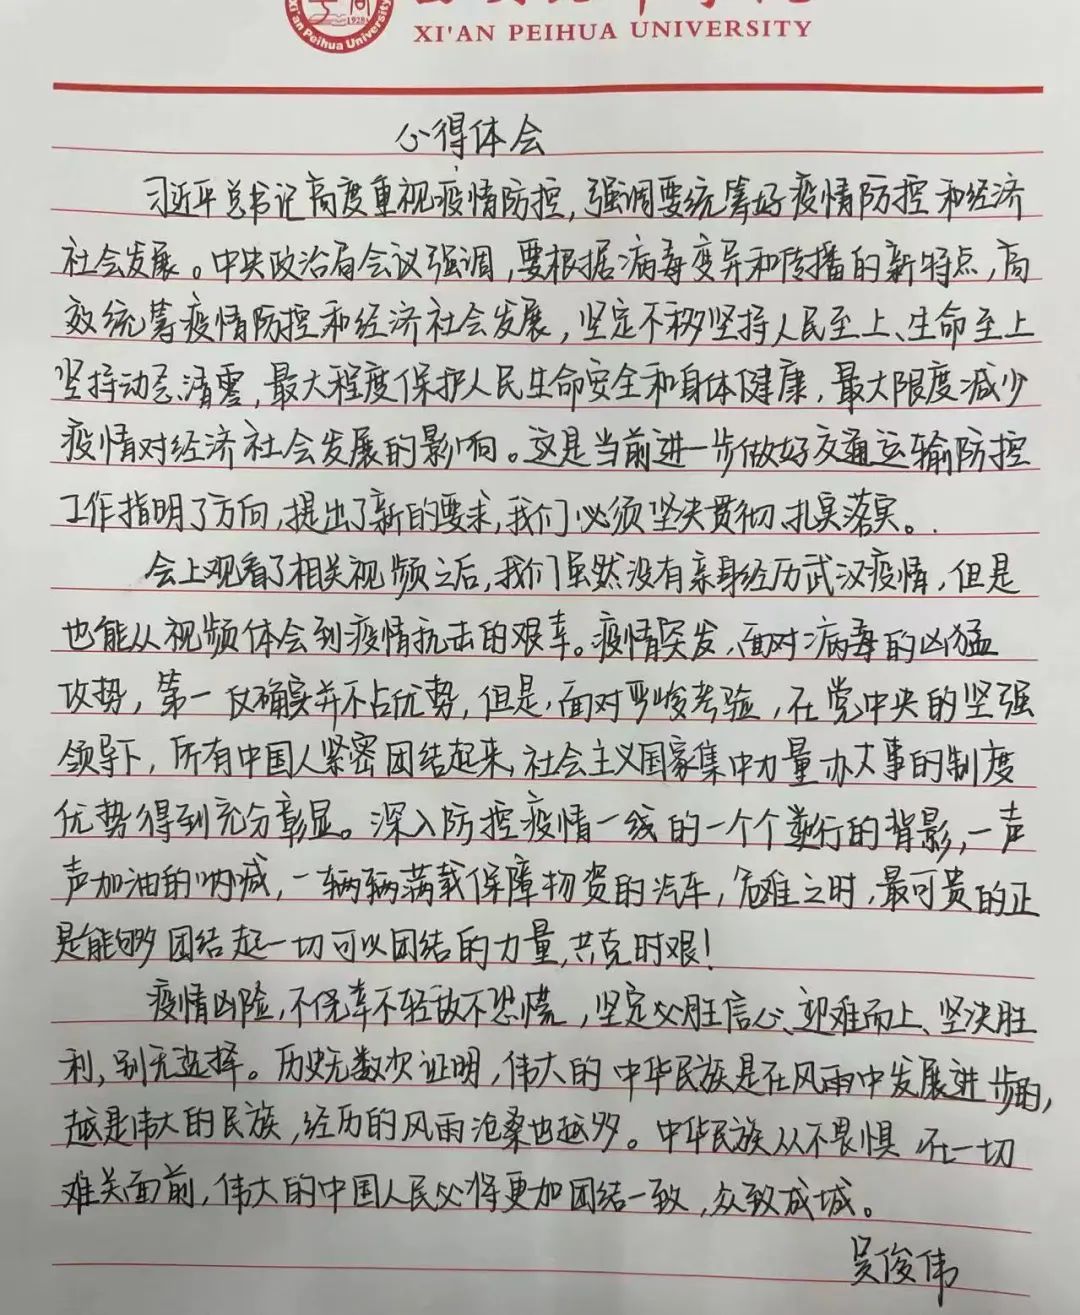 XI'AN PEIHUA UNIVERSITY
Xi'an Peihua University
1928
心得体会
习近平总书记高度重视疫情防控，强调要统筹好疫情防控和经济
社会发展。中央政治局会议强调，要根据病毒变异和传播的新特点，高
效统筹疫情防控和经济社会发展，坚定不移坚持人民至上、生命至上
坚持动态清零，最大程度保护人民生命安全和身体健康，最大限度减少
疫情对经济社会发展的影响。这是当前进一步做好交通运输防控
工作指明了方向，提出了新的要求，我们必须坚决贯彻扎实落实。
会上观看了相关视频之后，我们虽然没有亲身经历武汉疫情，但是
也能从视频体会到疫情抗击的艰辛。疫情突发，面对病毒的凶猛
攻势，第一仗确实并不占优势，但是，面对严峻考验，在党中央的坚强
领导下，所有中国人紧密团结起来，社会主义国家集中力量办大事的制度
优势得到充分彰显。深入防控疫情一线的一个个逆行的背影，一声
声加油的呐喊，一辆辆满载保障物资的汽车，危难之时，最可贵的正
是能够团结起一切可以团结的力量，共克时艰！
疫情凶险，不侥幸不轻敌不恐慌，坚定必胜信心、迎难而上、坚决胜
利，别无选择。历史无数次证明，伟大的中华民族是在风雨中发展进步的，
越是伟大的民族，经历的风雨沧桑也越多。中华民族从不畏惧 在一切
难关面前，伟大的中国人民必将更加团结一致，众致成城。
吴俊伟